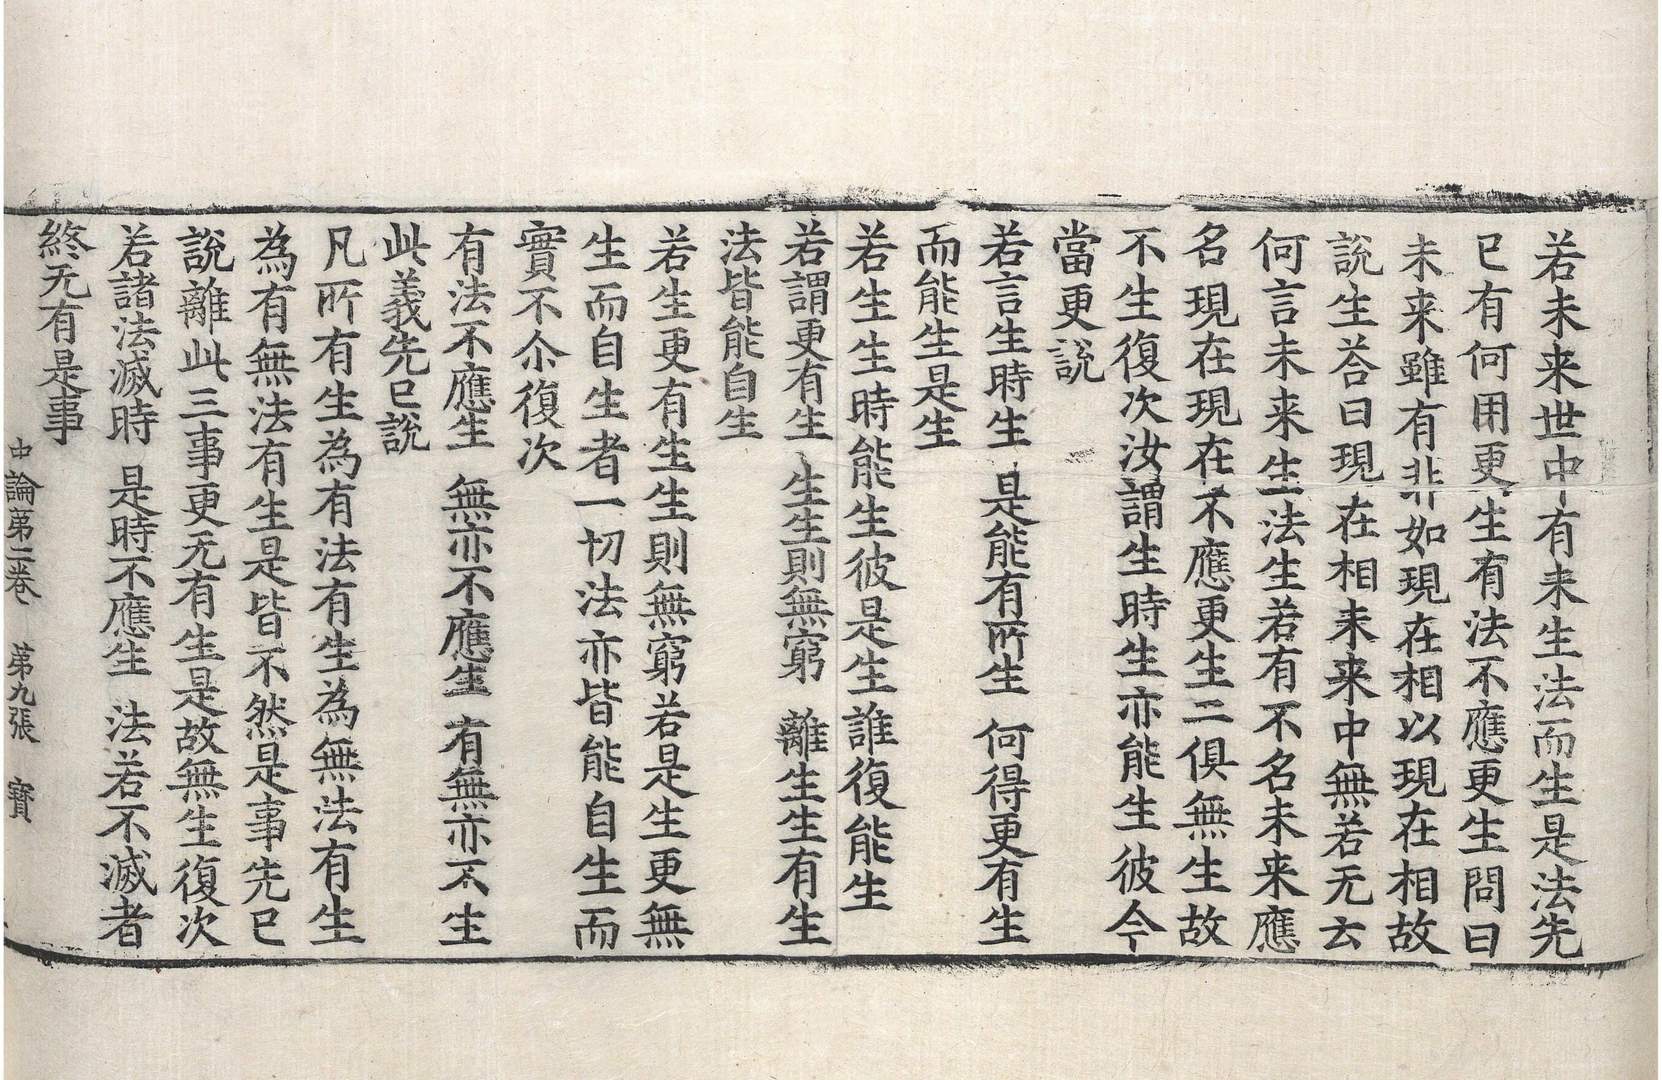 若未来世中有未来生法而生是法先
已有何用更生有法不應更生問曰
未来雖有非如現在相以現在相故
說生荅曰現在相未来中無若无云
何言未来生法生若有不名未来應
名現在現在不應更生二俱無生故
不生復次汝謂生時生亦能生彼今
當更說
若言生時生　是能有所生　何得更有生
而能生是生
若生生時能生彼是生誰復能生
若謂更有生　生生則無窮　離生生有生
法皆能自生
若生更有生生則無窮若是生更無
生而自生者一切法亦皆能自生而
實不尒復次
有法不應生　無亦不應生　有無亦不生
此義先已說
凡所有生為有法有生為無法有生
為有無法有生是皆不然是事先已
說離此三事更无有生是故無生復次
若諸法滅時　是時不應生　法若不滅者
終无有是事
中論第二卷　第九張　寳